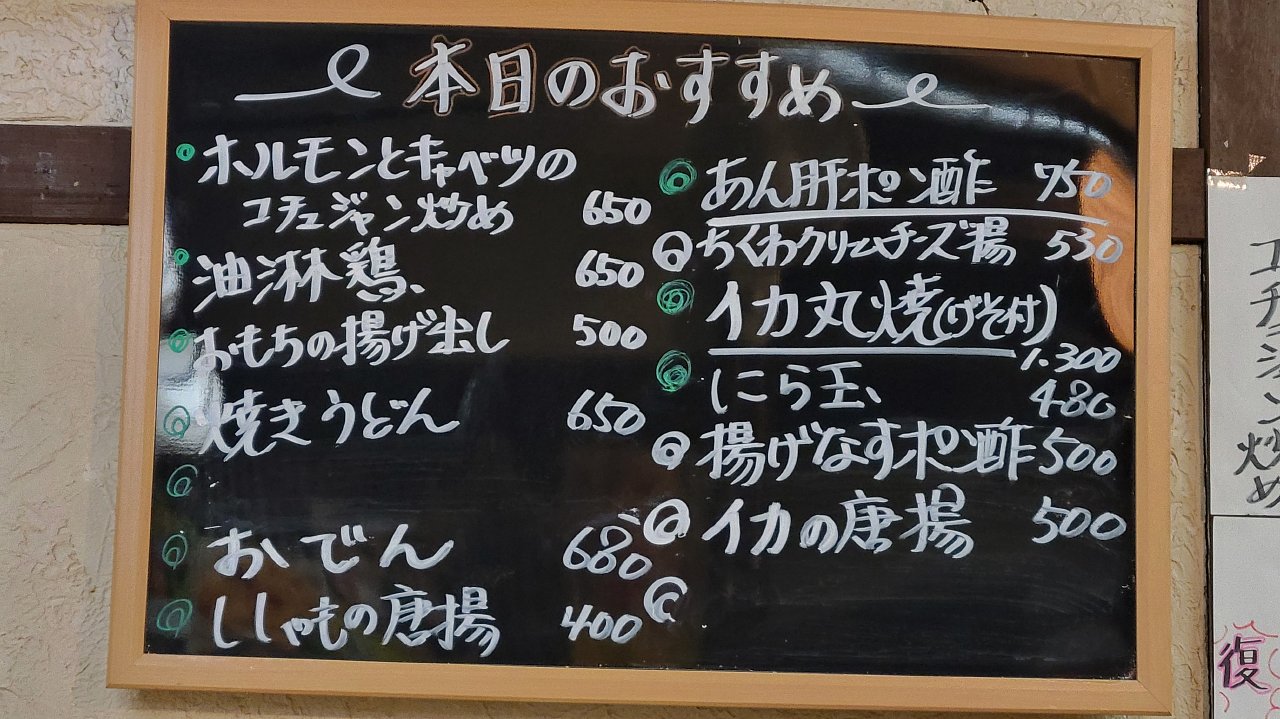 本日のおすすめ
ホルモンとキャベツの
コチュジャン炒め 650
油淋鶏、 650
おもちの揚げ出し 500
焼きうどん 650
おでん 680
ししゃもの唐揚 400
あん肝ポン酢 750
ちくわクリームチーズ揚 530
イカ丸焼(げそ付)
1.300
にら玉、 480
揚げなすポン酢 500
イカの唐揚 500
チュジャン炒め
復